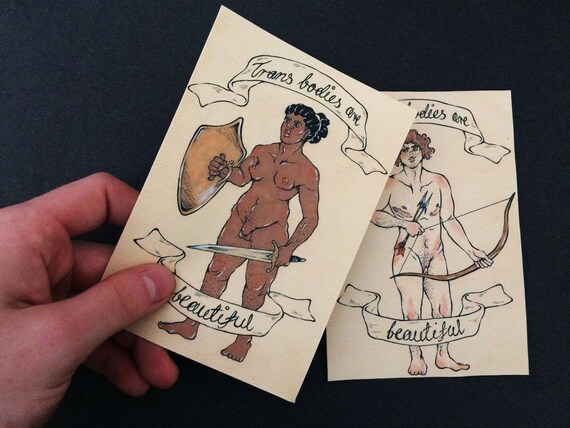 Trans bodies are
beautiful
bodies are
beautiful